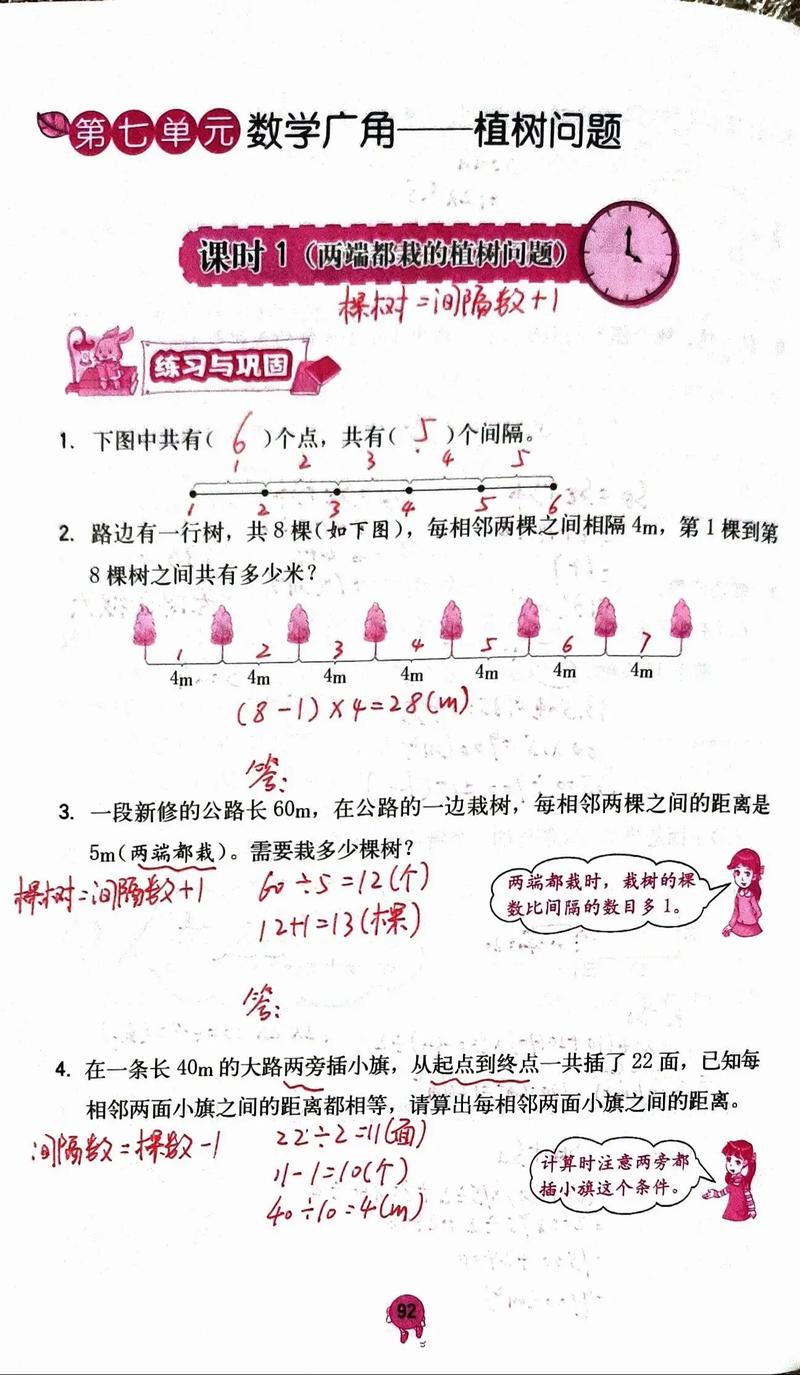 第七单元 数学广角——植树问题
课时1（两端都栽的植树问题）
棵树=间隔数+1
练习与巩固
1. 下图中共有( 6 )个点，共有( 5 )个间隔。
1 2 3 4 5
1 2 3 4 5 6
2. 路边有一行树，共8棵(如下图)，每相邻两棵之间相隔4m，第1棵到第
8棵树之间共有多少米？
1 2 3 4 5 6 7
4m 4m 4m 4m 4m 4m 4m
(8-1)×4=28(m)
答：
3. 一段新修的公路长60m，在公路的一边栽树，每相邻两棵之间的距离是
5m(两端都栽)。需要栽多少棵树？
棵树=间隔数+1
60÷5=12(个)
12+1=13(棵)
两端都栽时，栽树的棵
数比间隔的数目多1。
答：
4. 在一条长40m的大路两旁插小旗，从起点到终点一共插了22面，已知每
相邻两面小旗之间的距离都相等，请算出每相邻两面小旗之间的距离。
间隔数=棵数-1
22÷2=11(面)
11-1=10(个)
40÷10=4(m)
计算时注意两旁都
插小旗这个条件。
92